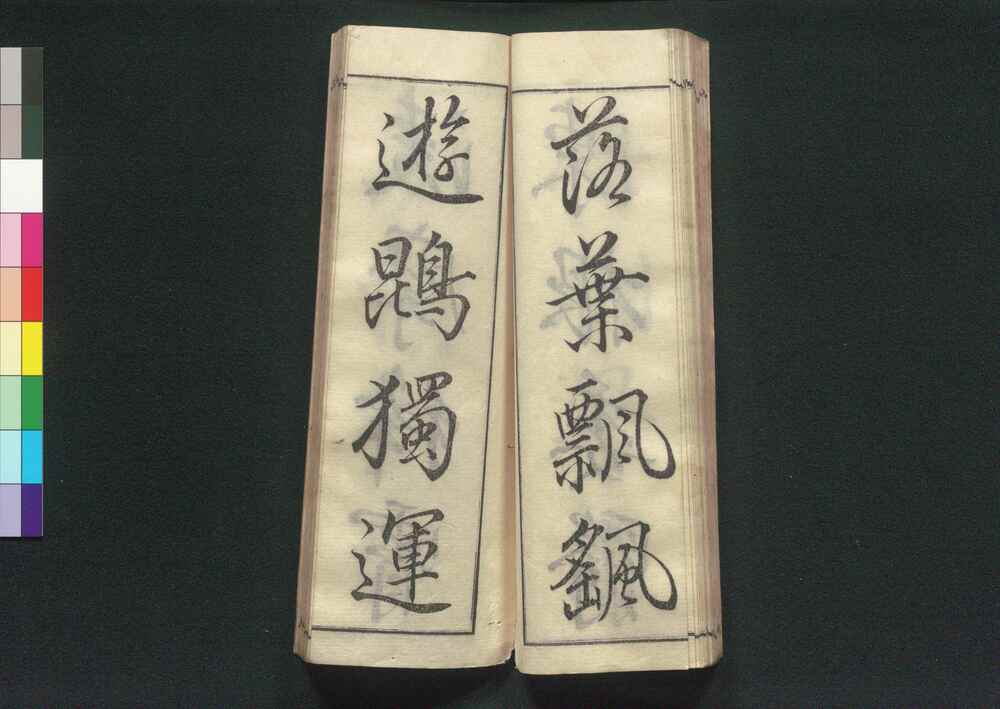 落葉飄颻
遊鵾獨運